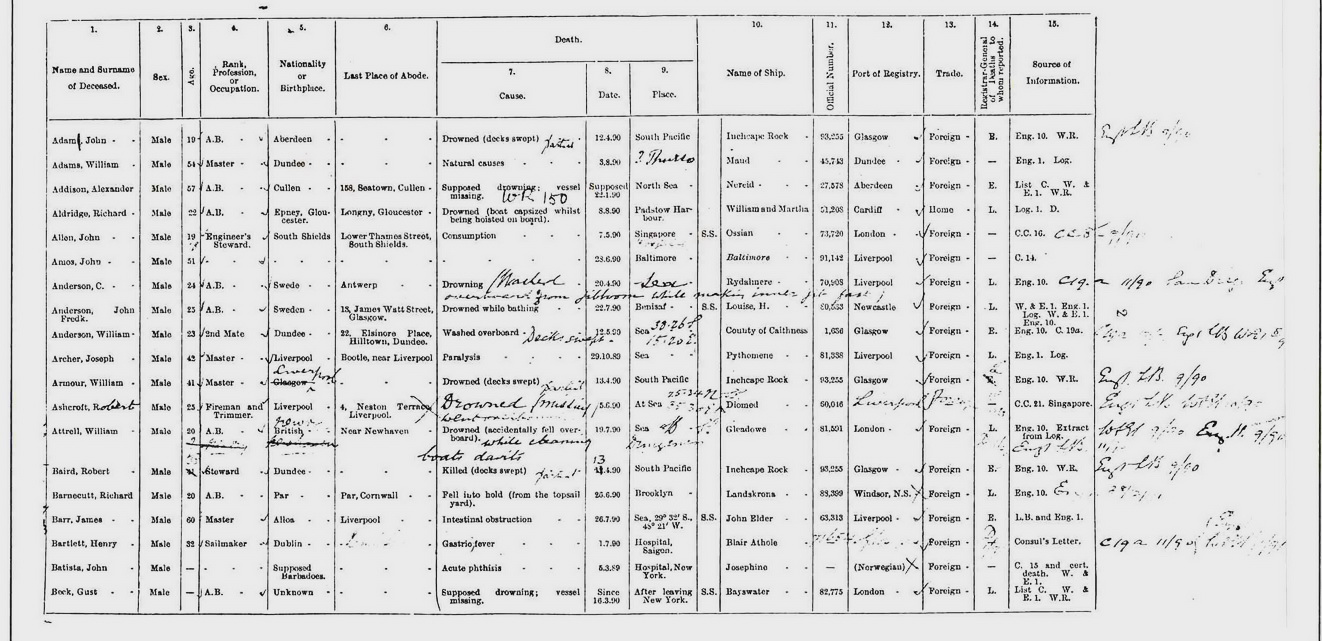 1. 2. 3. 4. 5. 6. Death. 10. 11. 12. 13. 14. 15.
Name and Surname of Deceased. Sex. Age. Rank, Profession, or Occupation. Nationality or Birthplace. Last Place of Abode. 7. Cause. 8. Date. 9. Place. Name of Ship. Official Number. Port of Registry. Trade. Registrar-General of Deaths to whom reported. Source of Information.
Adam, John - - Male 19 A.B. - Aberdeen - - Drowned (decks swept) 12.4.90 South Pacific Inchcape Rock - 93,255 Glasgow - Foreign - E. Eng. 10. W.R. Engt LB 9/90
Adams, William - Male 54 Master - Dundee - - - Natural causes - - 3.8.90 ? Thurso Maud - - 45,743 Dundee - Foreign - — Eng. 1. Log.
Addison, Alexander Male 57 A.B. - Cullen - - 158, Seatown, Cullen - Supposed drowning; vessel missing. WR 150 Supposed 22.1.90 North Sea - Nereid - - 27,578 Aberdeen Foreign - E. List C. W. & E. 1. W.R.
Aldridge, Richard - Male 22 A.B. - Epney, Gloucester. Longny, Gloucester - Drowned (boat capsized whilst being hoisted on board). 8.8.90 Padstow Harbour. William and Martha 51,208 Cardiff - Home - L. Log. 1. D.
Allen, John - - Male 19 Engineer's Steward. South Shields Lower Thames Street, South Shields. Consumption - - 7.5.90 Singapore - S.S. Ossian - - 73,720 London - Foreign - — C.C. 16.
Amos, John - Male 51 - - - - - 23.6.90 Baltimore - Baltimore - - 91,142 Liverpool Foreign - — C. 14.
Anderson, C. - - Male 24 A.B. - Swede - - Antwerp - Drowning (Washed overboard from jibboom while making inner jib fast) 20.4.90 Sea Rydalmere - - 70,908 Liverpool Foreign - L. Eng. 10. C 19 a 11/90 San Diego Eng
Anderson, John Fredk. Male 25 A.B. - Sweden - - 13, James Watt Street, Glasgow. Drowned while bathing - 22.7.90 Benisaf - S.S. Louise, H. - Newcastle Foreign - L. W. & E. 1. Eng. 1. Log. W. & E. 1. Eng. 10.
Anderson, William - Male 23 2nd Mate - Dundee - - 22, Elsinore Place, Hilltown, Dundee. Washed overboard - Decks swept 12.5.90 Sea County of Caithness 1,636 Glasgow - Foreign - E. Eng. 10. C. 19a.
Archer, Joseph - Male 42 Master - Liverpool - Bootle, near Liverpool Paralysis - - 29.10.89 Sea - - Pythomene - 81,338 Liverpool Foreign - L. Eng. 1. Log.
Armour, William - Male 41 Master - Liverpool Glasgow - - - Drowned (decks swept) 13.4.90 South Pacific Inchcape Rock - 93,255 Glasgow - Foreign - Eng. 10. W.R. Engt LB. 9/90
Ashcroft, Robert Male 25 Fireman and Trimmer. Liverpool - 4, Neston Terrace, Liverpool. Drowned (missing 5.6.90 At Sea Diomed - 60,016 Liverpool C.C. 21. Singapore.
Attrell, William - Male 20 A.B. - British - Near Newhaven - Drowned (accidentally fell overboard). while cleaning boats davits 19.7.90 Sea Gleadowe - - 81,591 London - Foreign - L. Eng. 10. Extract from Log.
Baird, Robert - Male Steward - Dundee - - - Killed (decks swept) 13.4.90 South Pacific Inchcape Rock - 93,255 Glasgow - Foreign - E. Eng. 10. W.R. Engt LB 9/90
Barnecutt, Richard Male 20 A.B. - Par - - Par, Cornwall - Fell into hold (from the topsail yard). 25.6.90 Brooklyn - Landskrona - - 88,399 Windsor, N.S. Foreign - L. Eng. 10.
Barr, James - - Male 60 Master Alloa - Liverpool - Intestinal obstruction - - 26.7.90 Sea, 29° 32' S., 45° 21' W. S.S. John Elder - - 63,313 Liverpool - Foreign - E. L.B. and Eng. 1.
Bartlett, Henry - Male 32 Sailmaker Dublin - - Gastric fever - - 1.7.90 Hospital, Saigon. Blair Athole - Foreign - Consul's Letter. C 19 a 11/90
Batista, John - Male — - - Supposed Barbadoes. - - Acute phthisis - - 5.3.89 Hospital, New York. Josephino - - — (Norwegian) Foreign - — C. 15 and cert. death. W. & E. 1.
Beck, Gust - - Male — A.B. - Unknown - - - Supposed drowning; vessel missing. Since 16.3.90 After leaving New York. S.S. Bayswater - - 82,775 London - Foreign - L. List C. W. & E. 1. W.R.